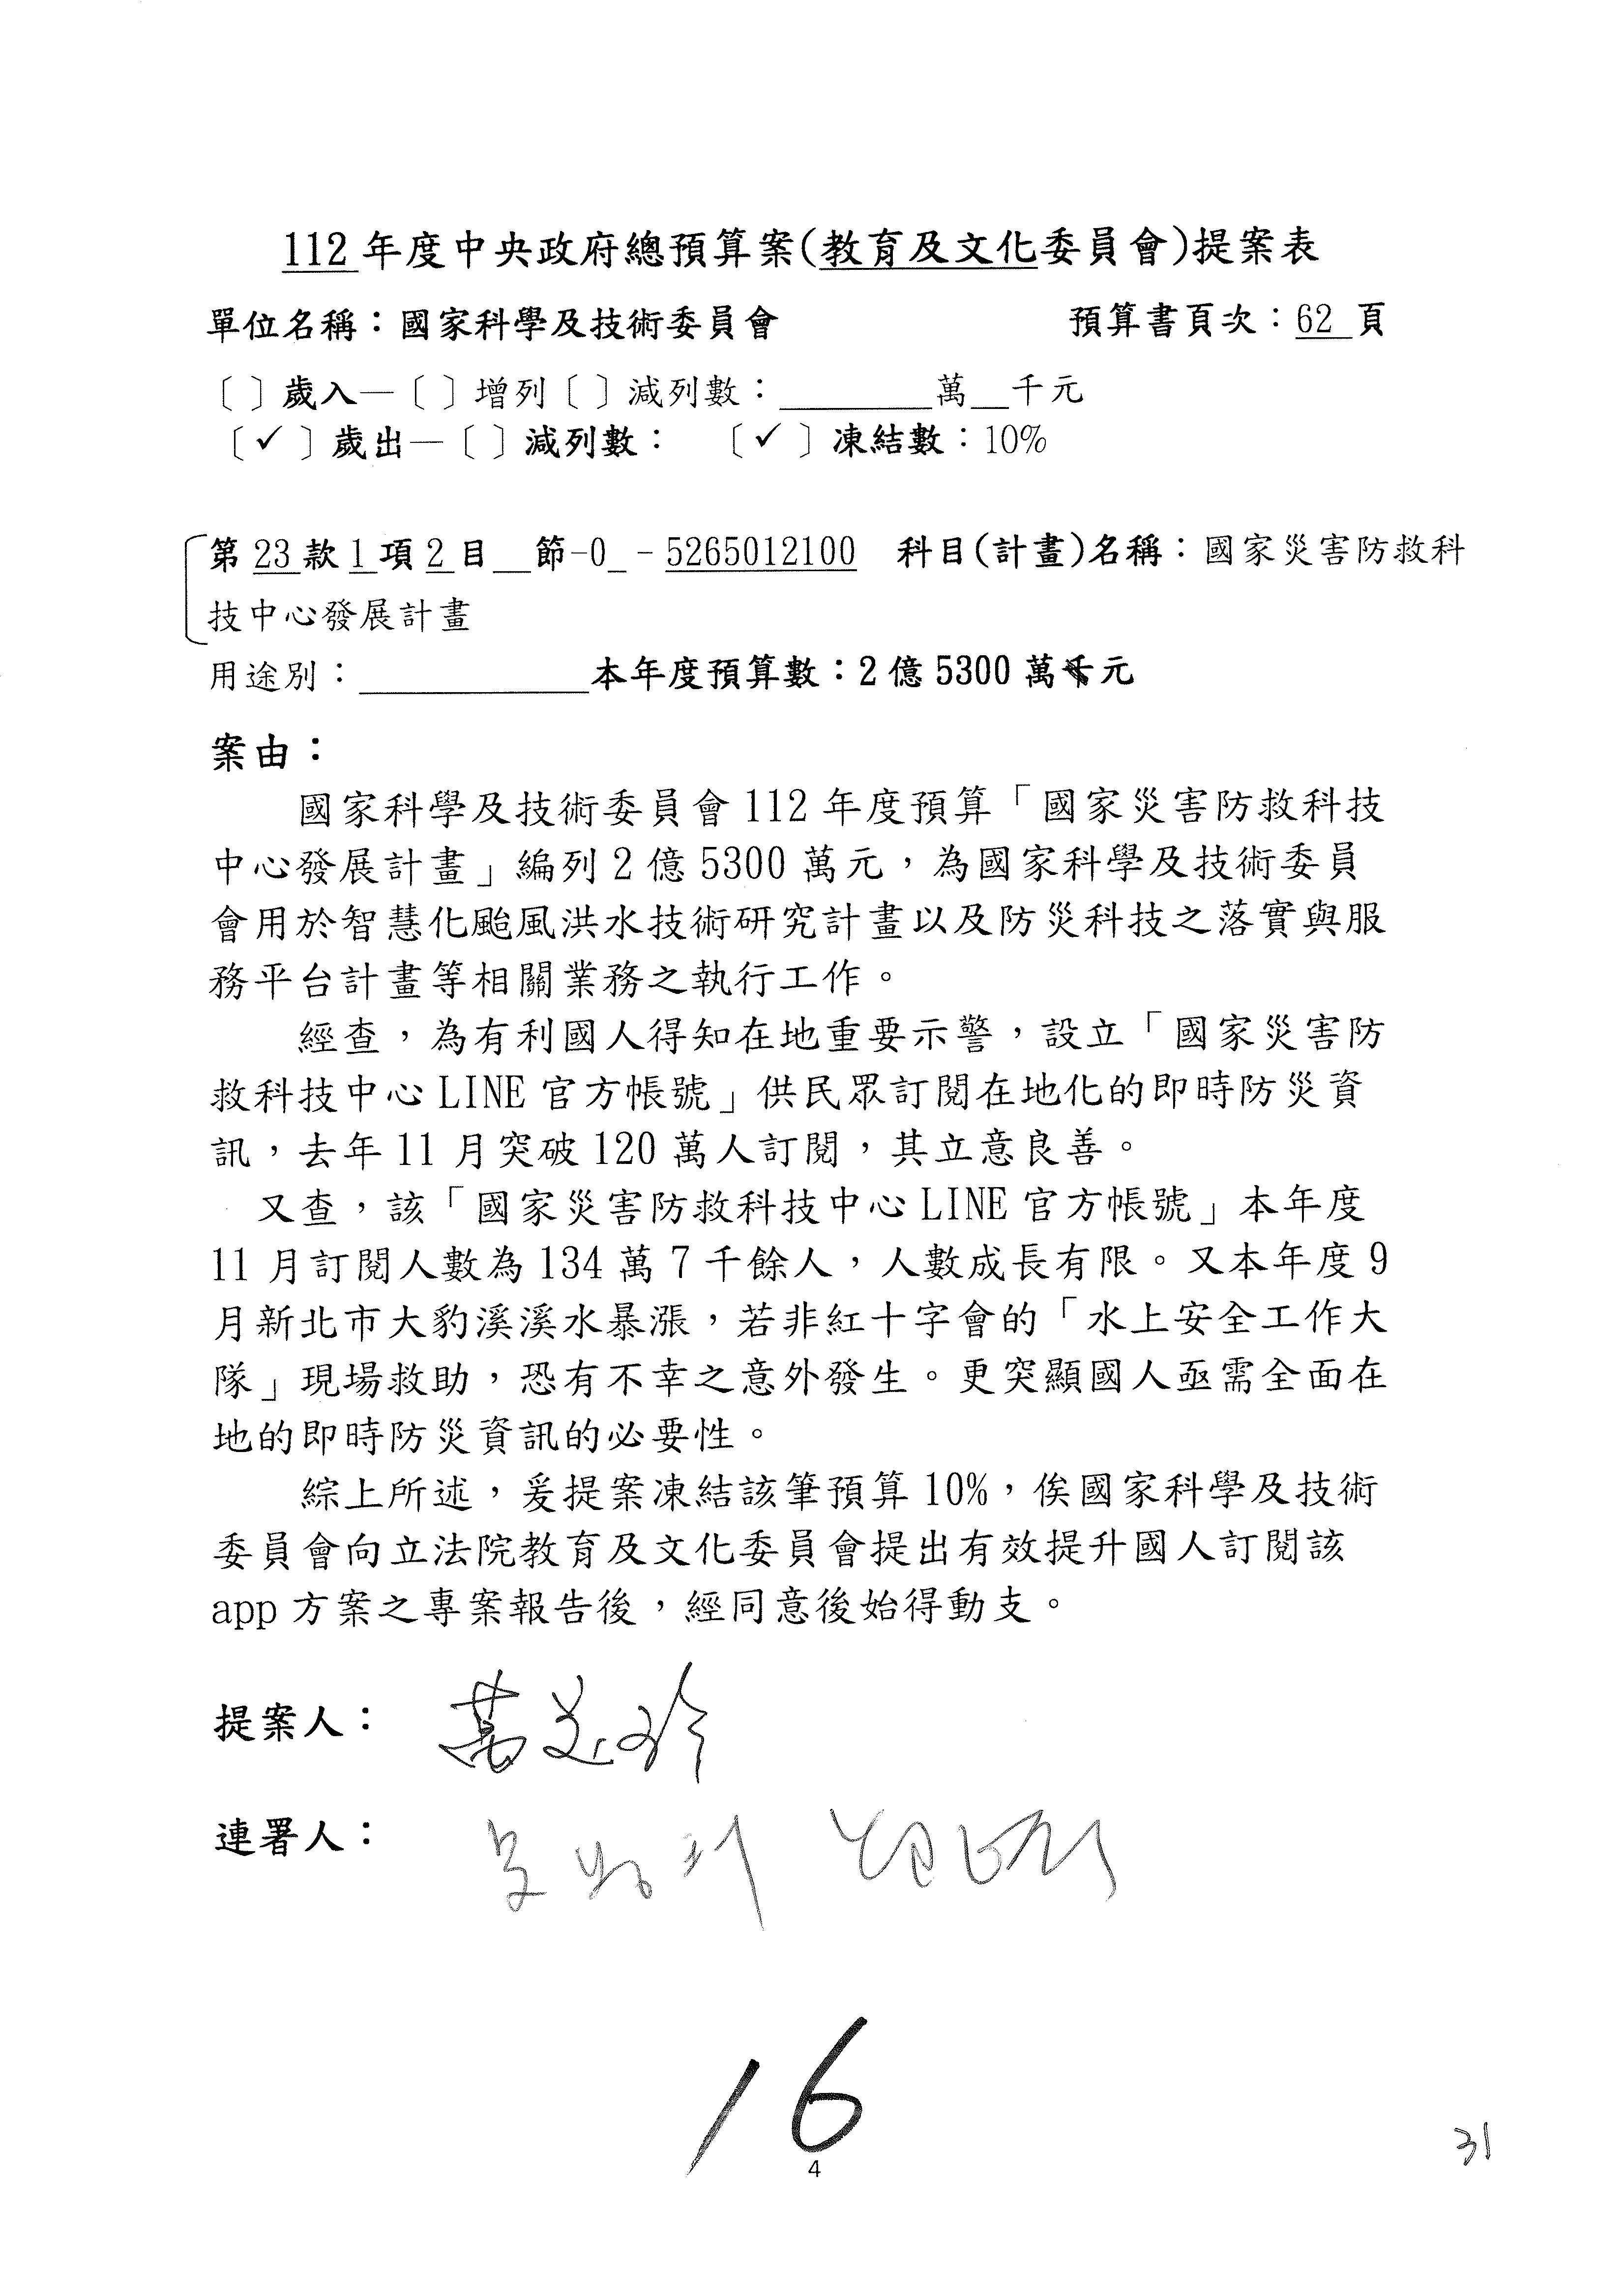 112 年度中央政府總預算案(教育及文化委員會)提案表
單位名稱：國家科學及技術委員會 預算書頁次：62 頁
〔 〕歲入—〔 〕增列〔 〕減列數：________萬__千元
〔✓〕歲出—〔 〕減列數： 〔✓〕凍結數：10%
第 23 款 1 項 2 目__節-0_-5265012100 科目(計畫)名稱：國家災害防救科
技中心發展計畫
用途別：____________本年度預算數：2 億 5300 萬千元
案由：
國家科學及技術委員會 112 年度預算「國家災害防救科技
中心發展計畫」編列 2 億 5300 萬元，為國家科學及技術委員
會用於智慧化颱風洪水技術研究計畫以及防災科技之落實與服
務平台計畫等相關業務之執行工作。
經查，為有利國人得知在地重要示警，設立「國家災害防
救科技中心 LINE 官方帳號」供民眾訂閱在地化的即時防災資
訊，去年 11 月突破 120 萬人訂閱，其立意良善。
又查，該「國家災害防救科技中心 LINE 官方帳號」本年度
11 月訂閱人數為 134 萬 7 千餘人，人數成長有限。又本年度 9
月新北市大豹溪溪水暴漲，若非紅十字會的「水上安全工作大
隊」現場救助，恐有不幸之意外發生。更突顯國人亟需全面在
地的即時防災資訊的必要性。
綜上所述，爰提案凍結該筆預算 10%，俟國家科學及技術
委員會向立法院教育及文化委員會提出有效提升國人訂閱該
app 方案之專案報告後，經同意後始得動支。
提案人： 萬美玲
連署人：
16
4
31